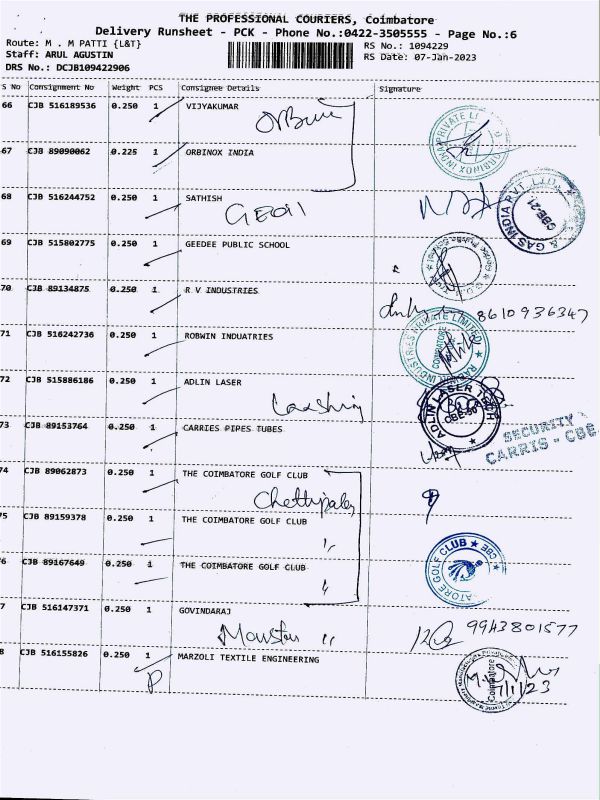 THE PROFESSIONAL COURIERS, Coimbatore
Delivery Runsheet - PCK - Phone No.:0422-3505555 - Page No.:6
Route: M . M PATTI {L&T}
RS No.: 1094229
Staff: ARUL AGUSTIN
RS Date: 07-Jan-2023
DRS No.: DCJB109422906
S No Consignment No Weight PCS Consignee Details Signature
66 CJB 516189536 0.250 1 VIJYAKUMAR
67 CJB 89090062 0.225 1 ORBINOX INDIA
68 CJB 516244752 0.250 1 SATHISH
69 CJB 515802775 0.250 1 GEEDEE PUBLIC SCHOOL
70 CJB 89134875 0.250 1 R.V INDUSTRIES
8610936347
71 CJB 516242736 0.250 1 ROBWIN INDUATRIES
72 CJB 515886186 0.250 1 ADLIN LASER
ADLIN LASER TECH
73 CJB 89153764 0.250 1 CARRIES PIPES TUBES
SECURITY
CARRIS - CBE
74 CJB 89062873 0.250 1 THE COIMBATORE GOLF CLUB
75 CJB 89159378 0.250 1 THE COIMBATORE GOLF CLUB
6 CJB 89167649 0.250 1 THE COIMBATORE GOLF CLUB
ATORE GOLF CLUB ★ CBE ★
7 CJB 516147371 0.250 1 GOVINDARAJ
9943801577
8 CJB 516155826 0.250 1 MARZOLI TEXTILE ENGINEERING
P